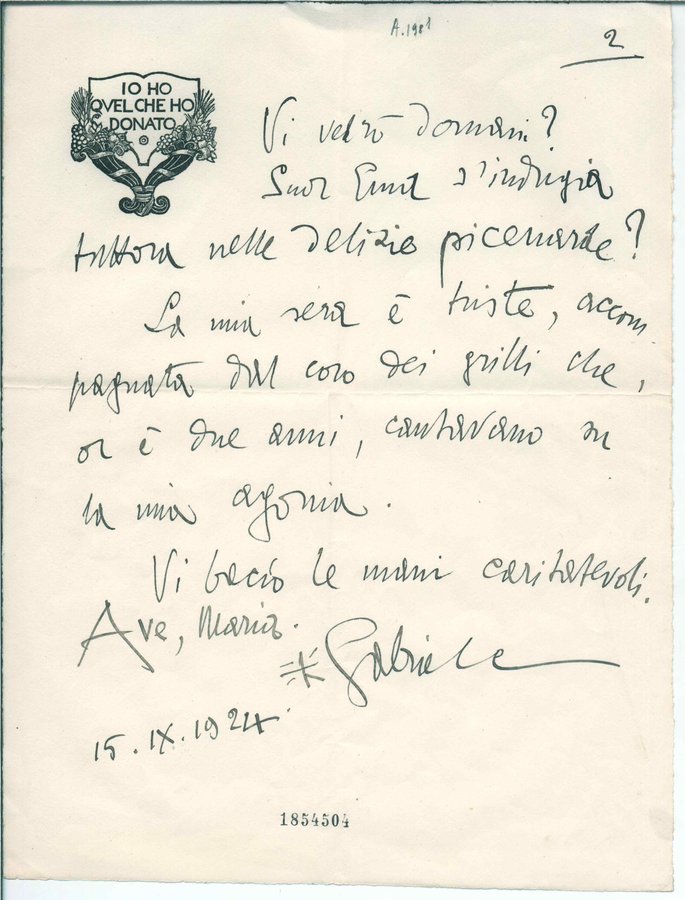 A.1981
2
IO HO
QVEL CHE HO
DONATO
Vi vedrò domani?
Suor Emma s'indugia
tuttora nelle delizie picenarde?
La mia sera è triste, accom
pagnata dal coro dei grilli che,
or è due anni, cantavano su
la mia agonia.
Vi bacio le mani caritatevoli.
Ave, Maria.
Gabriele
15.IX.1924.
1854504